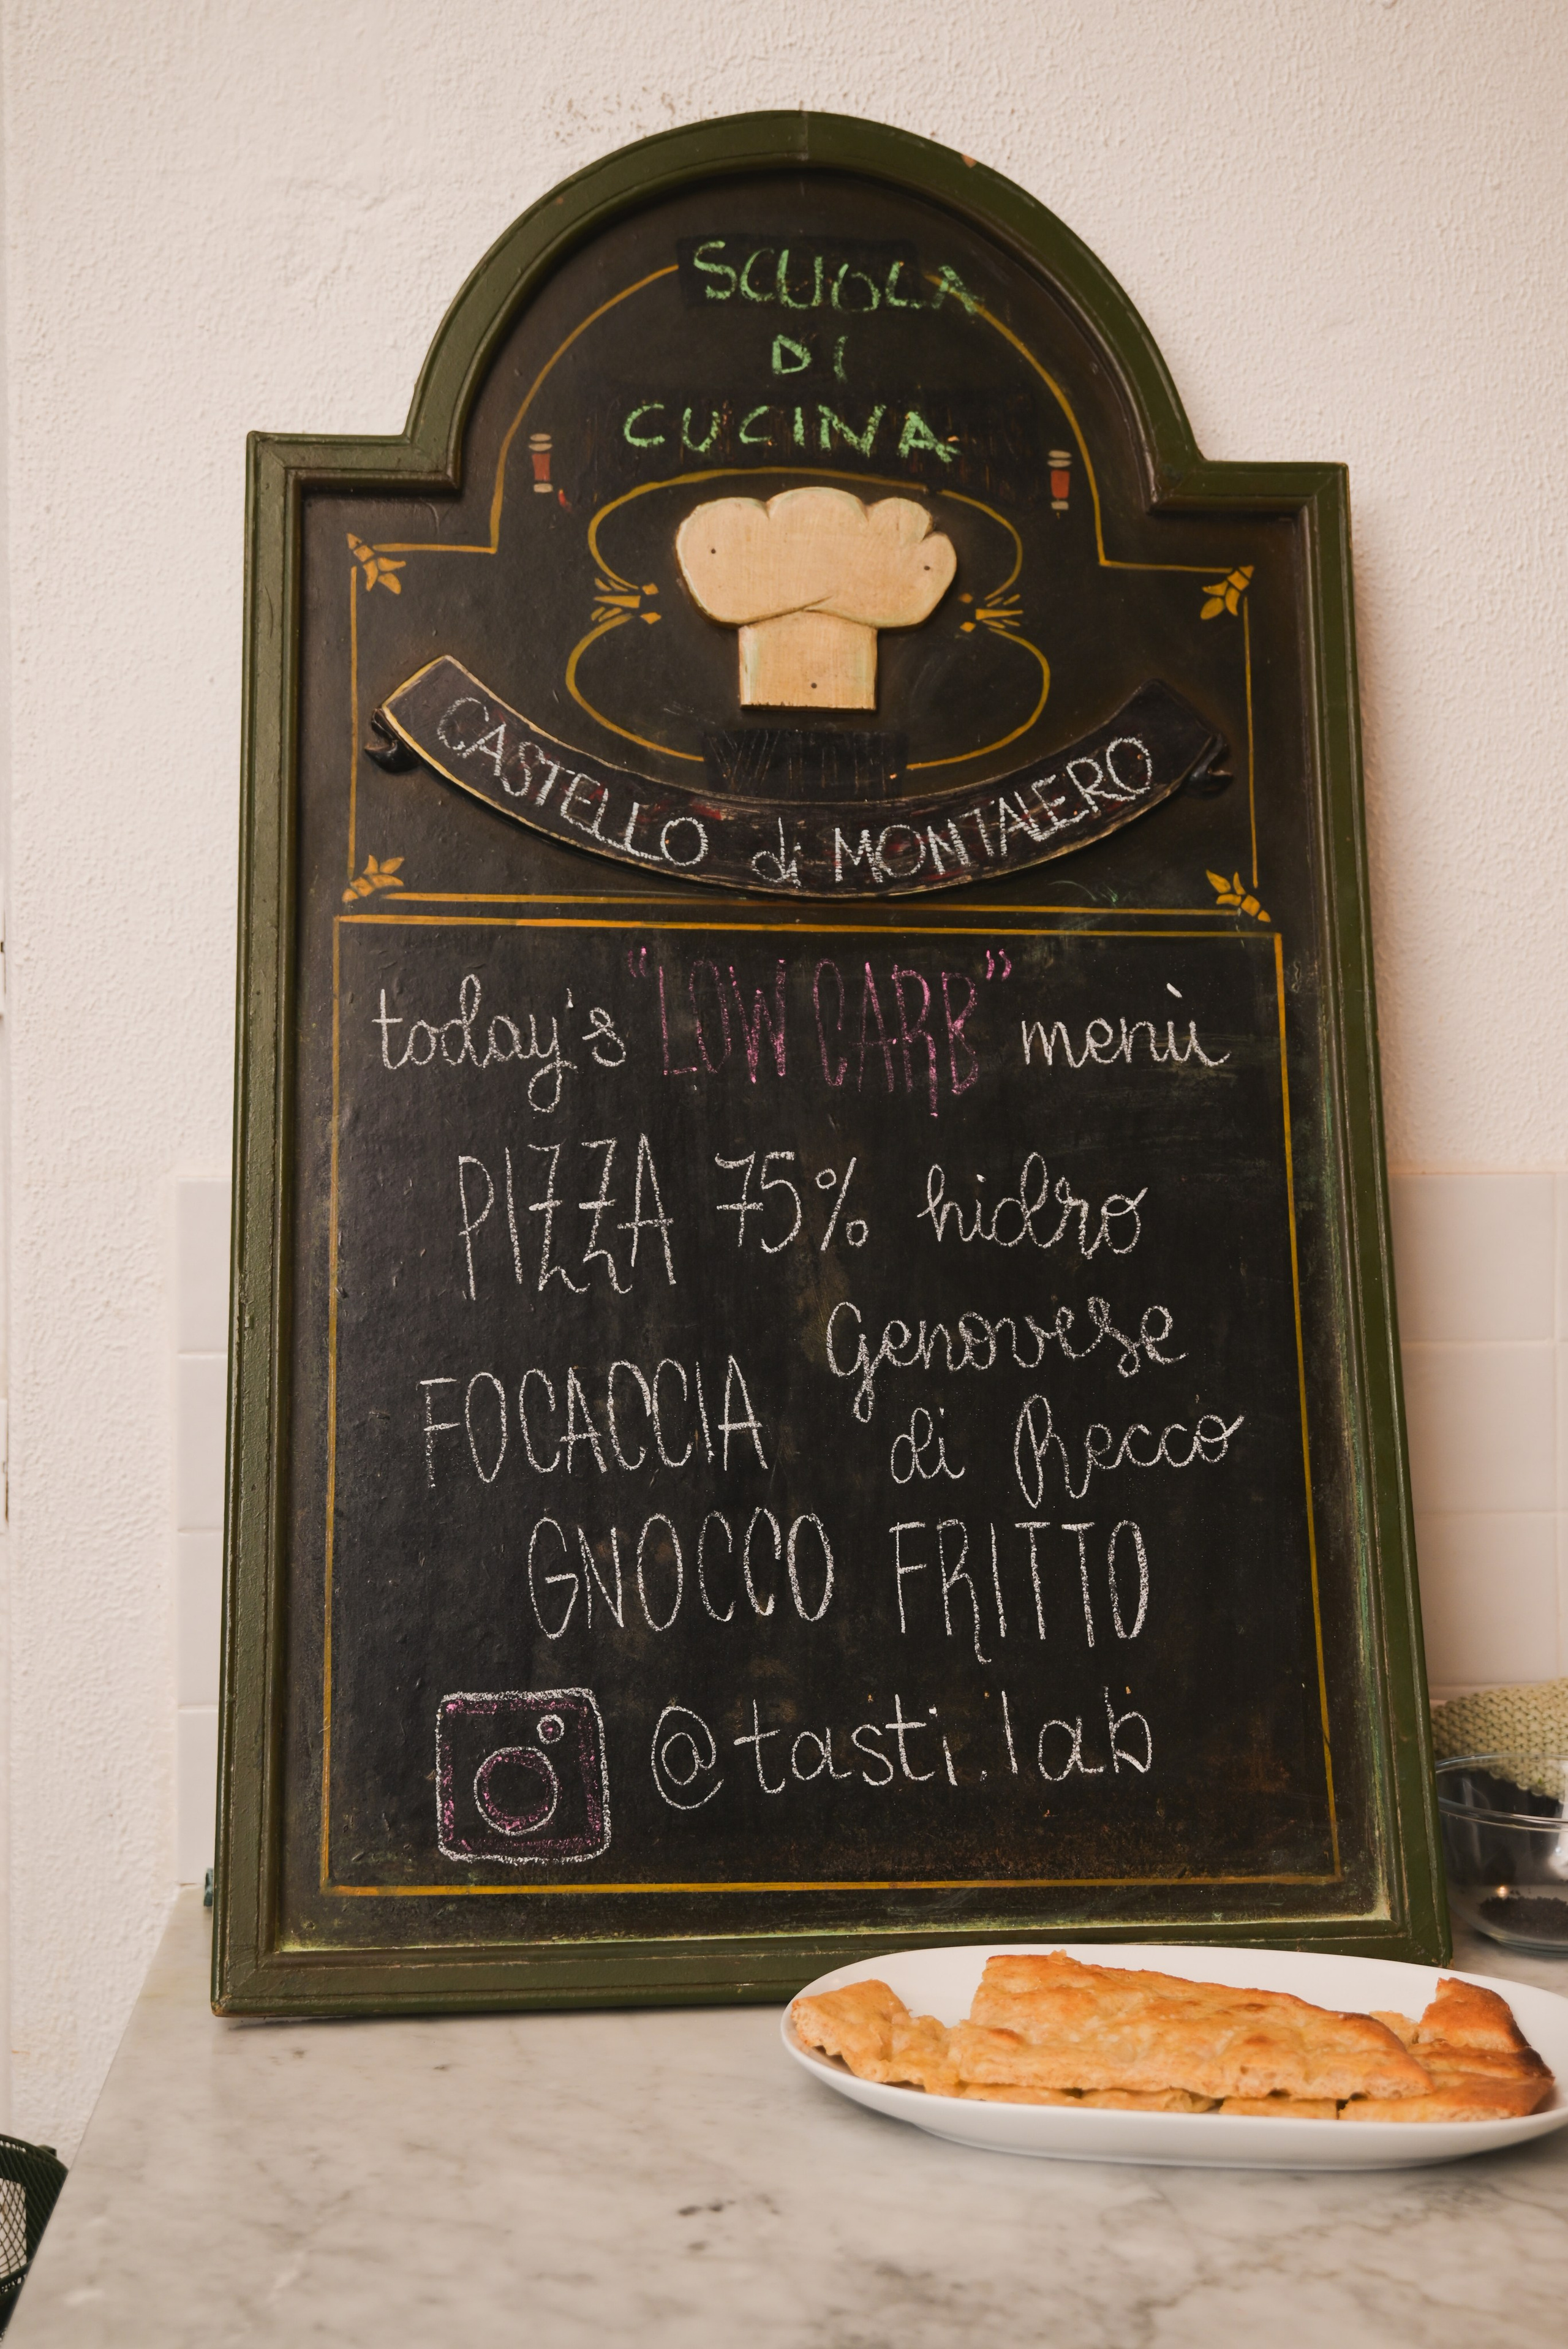 SCUOLA
DI
CUCINA
CASTELLO di MONTALERO
today's "LOW CARB" menù
PIZZA 75% hidro
FOCACCIA Genovese
di Recco
GNOCCO FRITTO
@tasti.lab